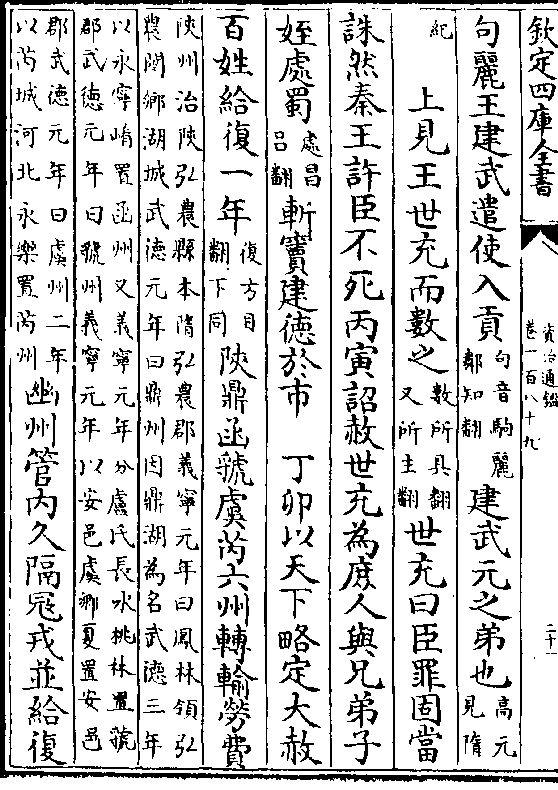 欽定四庫全書
資治通鑑
卷一百八十九
二十一
句麗王建武遣使入貢句音駒麗鄰知翻建武元之弟也高元見隋
紀上見王世充而數之數所具翻又所主翻世充曰臣罪固當
誅然秦王許臣不死丙寅詔赦世充為庶人與兄弟子
姪處蜀處昌呂翻斬竇建德於市丁卯以天下略定大赦
百姓給復一年復方目翻下同陜鼎函虢虞芮六州轉輸勞費
陜州治陜弘農縣本隋弘農郡義寧元年曰鳳林領弘
農閿鄉湖城武德元年曰鼎州因鼎湖為名武德三年
以永寧崤置函州又義寧元年分盧氏長水桃林置虢
郡武德元年曰虢州義寧元年以安邑虞鄉夏置安邑
郡武德元年曰虞州二年
以芮城河北永樂置芮州幽州管内久隔寇戎並給復